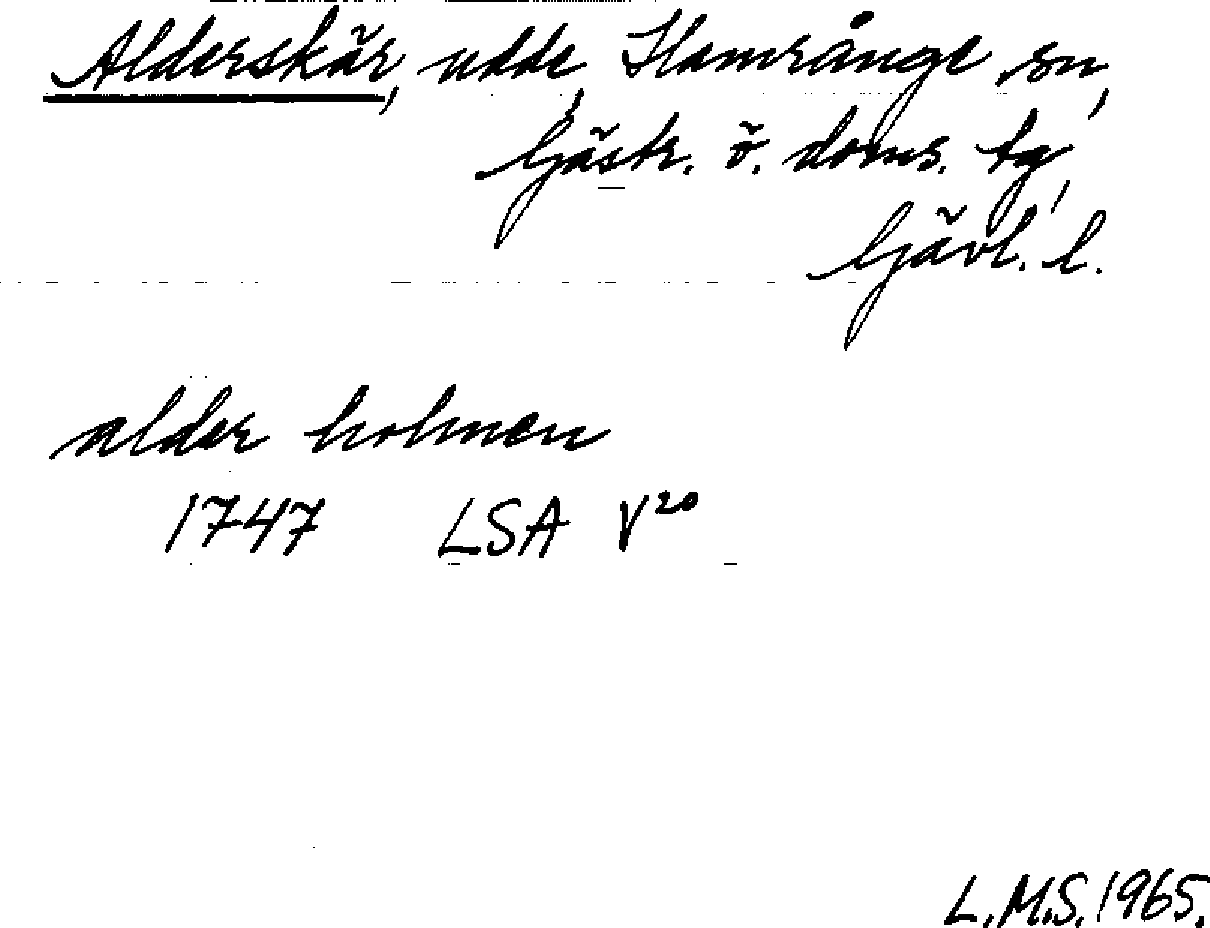 Alderskär, udde, Hamrånge sn,
Gästr. ö. doms. tg,
Gävl. l.
alder holmen
1747 LSA V²⁰
L.M.S. 1965.